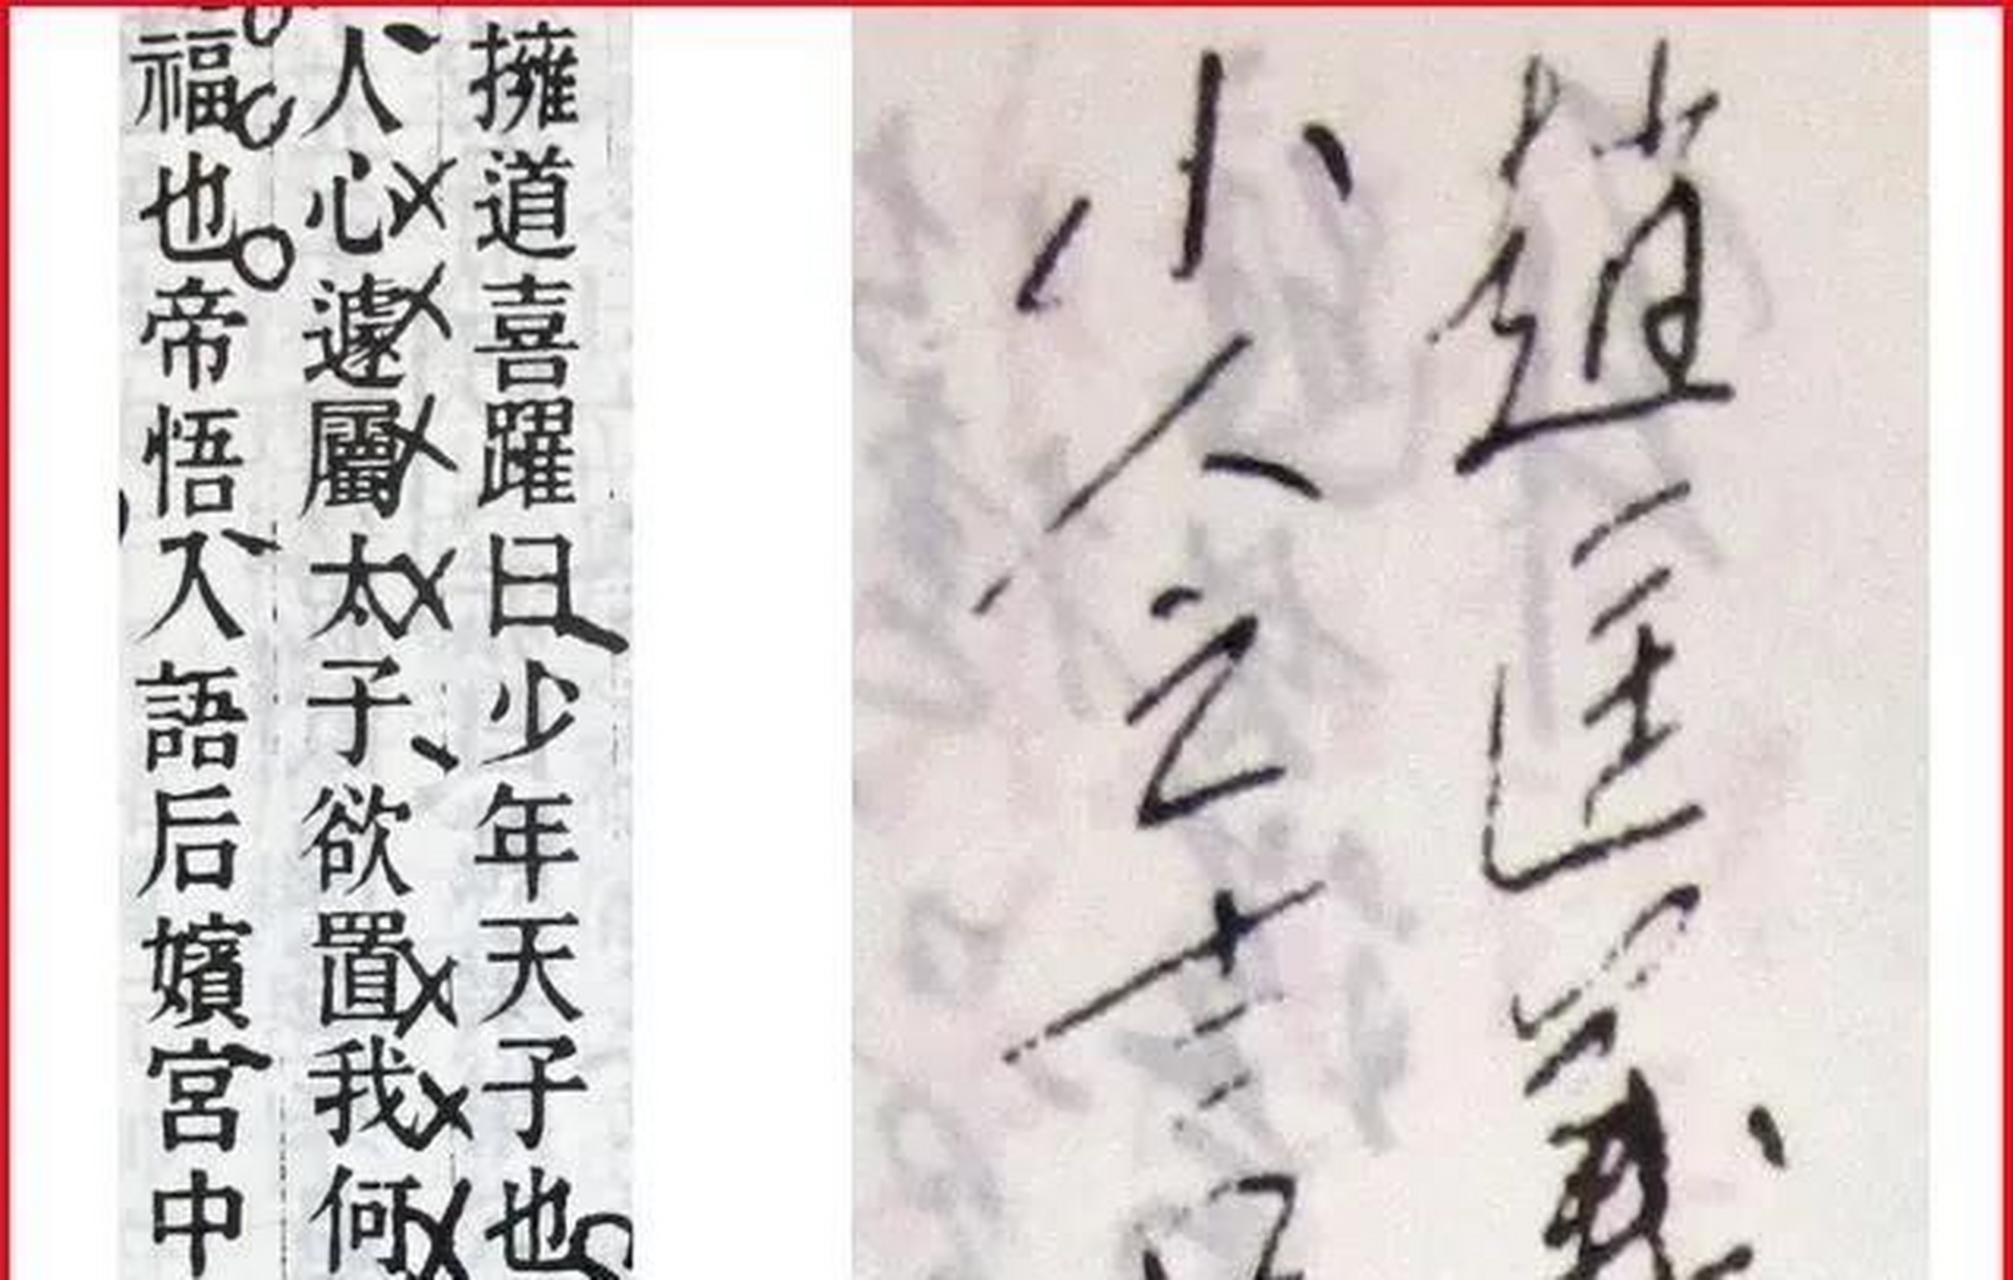 擁道喜躍曰少年天子也
人心遽屬太子欲置我何
福也帝悟入語后嬪宮中
趙匡義
小人之言